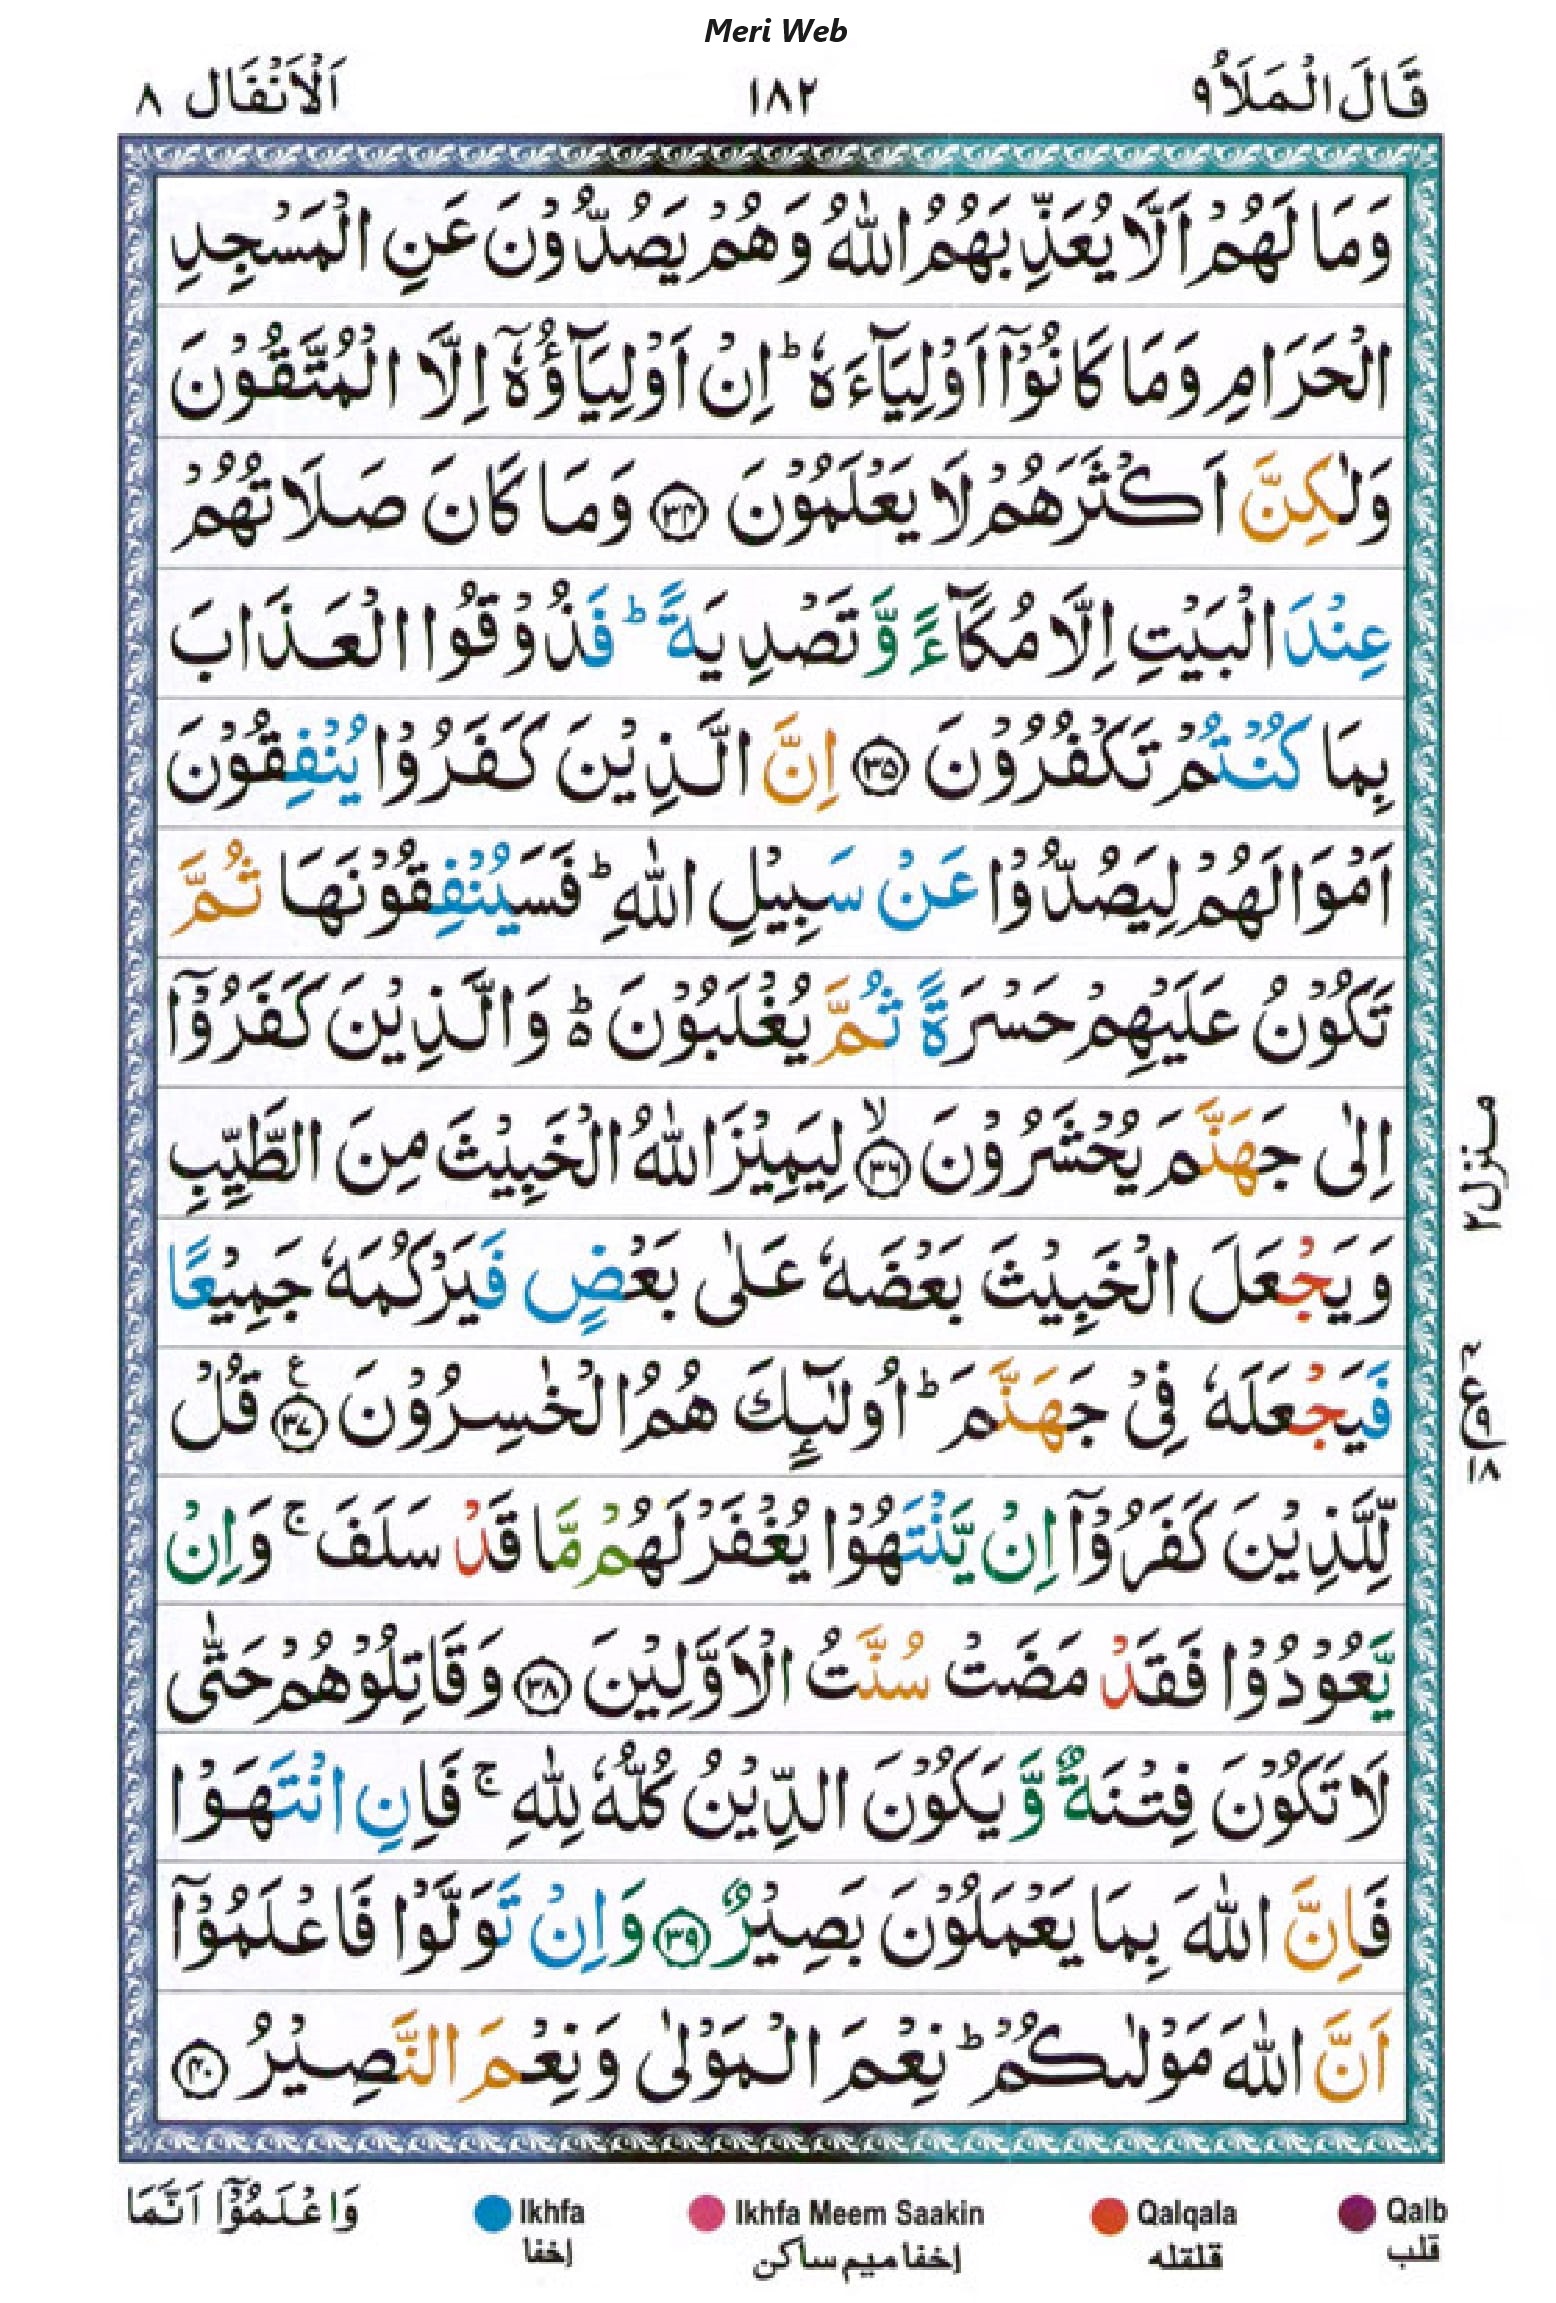 Meri Web
قَالَ الْمَلَاُ ٩
١٨٢
اَلْاَنْفَال ٨
وَمَا لَهُمْ اَلَّا يُعَذِّبَهُمُ اللّٰهُ وَهُمْ يَصُدُّوْنَ عَنِ الْمَسْجِدِ
الْحَرَامِ وَمَا كَانُوْۤا اَوْلِيَآءَهٗ ؕ اِنْ اَوْلِيَآؤُهٗۤ اِلَّا الْمُتَّقُوْنَ
وَلٰكِنَّ اَكْثَرَهُمْ لَا يَعْلَمُوْنَ ۝۳۴ وَمَا كَانَ صَلَاتُهُمْ
عِنْدَ الْبَيْتِ اِلَّا مُكَآءً وَّ تَصْدِيَةً ؕ فَذُوْقُوا الْعَذَابَ
بِمَا كُنْتُمْ تَكْفُرُوْنَ ۝۳۵ اِنَّ الَّذِيْنَ كَفَرُوْا يُنْفِقُوْنَ
اَمْوَالَهُمْ لِيَصُدُّوْا عَنْ سَبِيْلِ اللّٰهِ ؕ فَسَيُنْفِقُوْنَهَا ثُمَّ
تَكُوْنُ عَلَيْهِمْ حَسْرَةً ثُمَّ يُغْلَبُوْنَ ؕ۬ وَالَّذِيْنَ كَفَرُوْۤا
اِلٰى جَهَنَّمَ يُحْشَرُوْنَ ۝۳۶ۙ لِيَمِيْزَ اللّٰهُ الْخَبِيْثَ مِنَ الطَّيِّبِ
وَيَجْعَلَ الْخَبِيْثَ بَعْضَهٗ عَلٰى بَعْضٍ فَيَرْكُمَهٗ جَمِيْعًا
فَيَجْعَلَهٗ فِيْ جَهَنَّمَ ؕ اُولٰٓئِكَ هُمُ الْخٰسِرُوْنَ ۝۳۷ ع قُلْ
لِّلَّذِيْنَ كَفَرُوْۤا اِنْ يَّنْتَهُوْا يُغْفَرْ لَهُمْ مَّا قَدْ سَلَفَ ۚ وَاِنْ
يَّعُوْدُوْا فَقَدْ مَضَتْ سُنَّتُ الْاَوَّلِيْنَ ۝۳۸ وَقَاتِلُوْهُمْ حَتّٰى
لَا تَكُوْنَ فِتْنَةٌ وَّ يَكُوْنَ الدِّيْنُ كُلُّهٗ لِلّٰهِ ۚ فَاِنِ انْتَهَوْا
فَاِنَّ اللّٰهَ بِمَا يَعْمَلُوْنَ بَصِيْرٌ ۝۳۹ وَاِنْ تَوَلَّوْا فَاعْلَمُوْۤا
اَنَّ اللّٰهَ مَوْلٰىكُمْ ؕ نِعْمَ الْمَوْلٰى وَنِعْمَ النَّصِيْرُ ۝۴۰
منزل ٢
وَاعْلَمُوْۤا اَنَّمَا
Ikhfa
إخفا
Ikhfa Meem Saakin
إخفا ميم ساكن
Qalqala
قلقله
Qalb
قلب